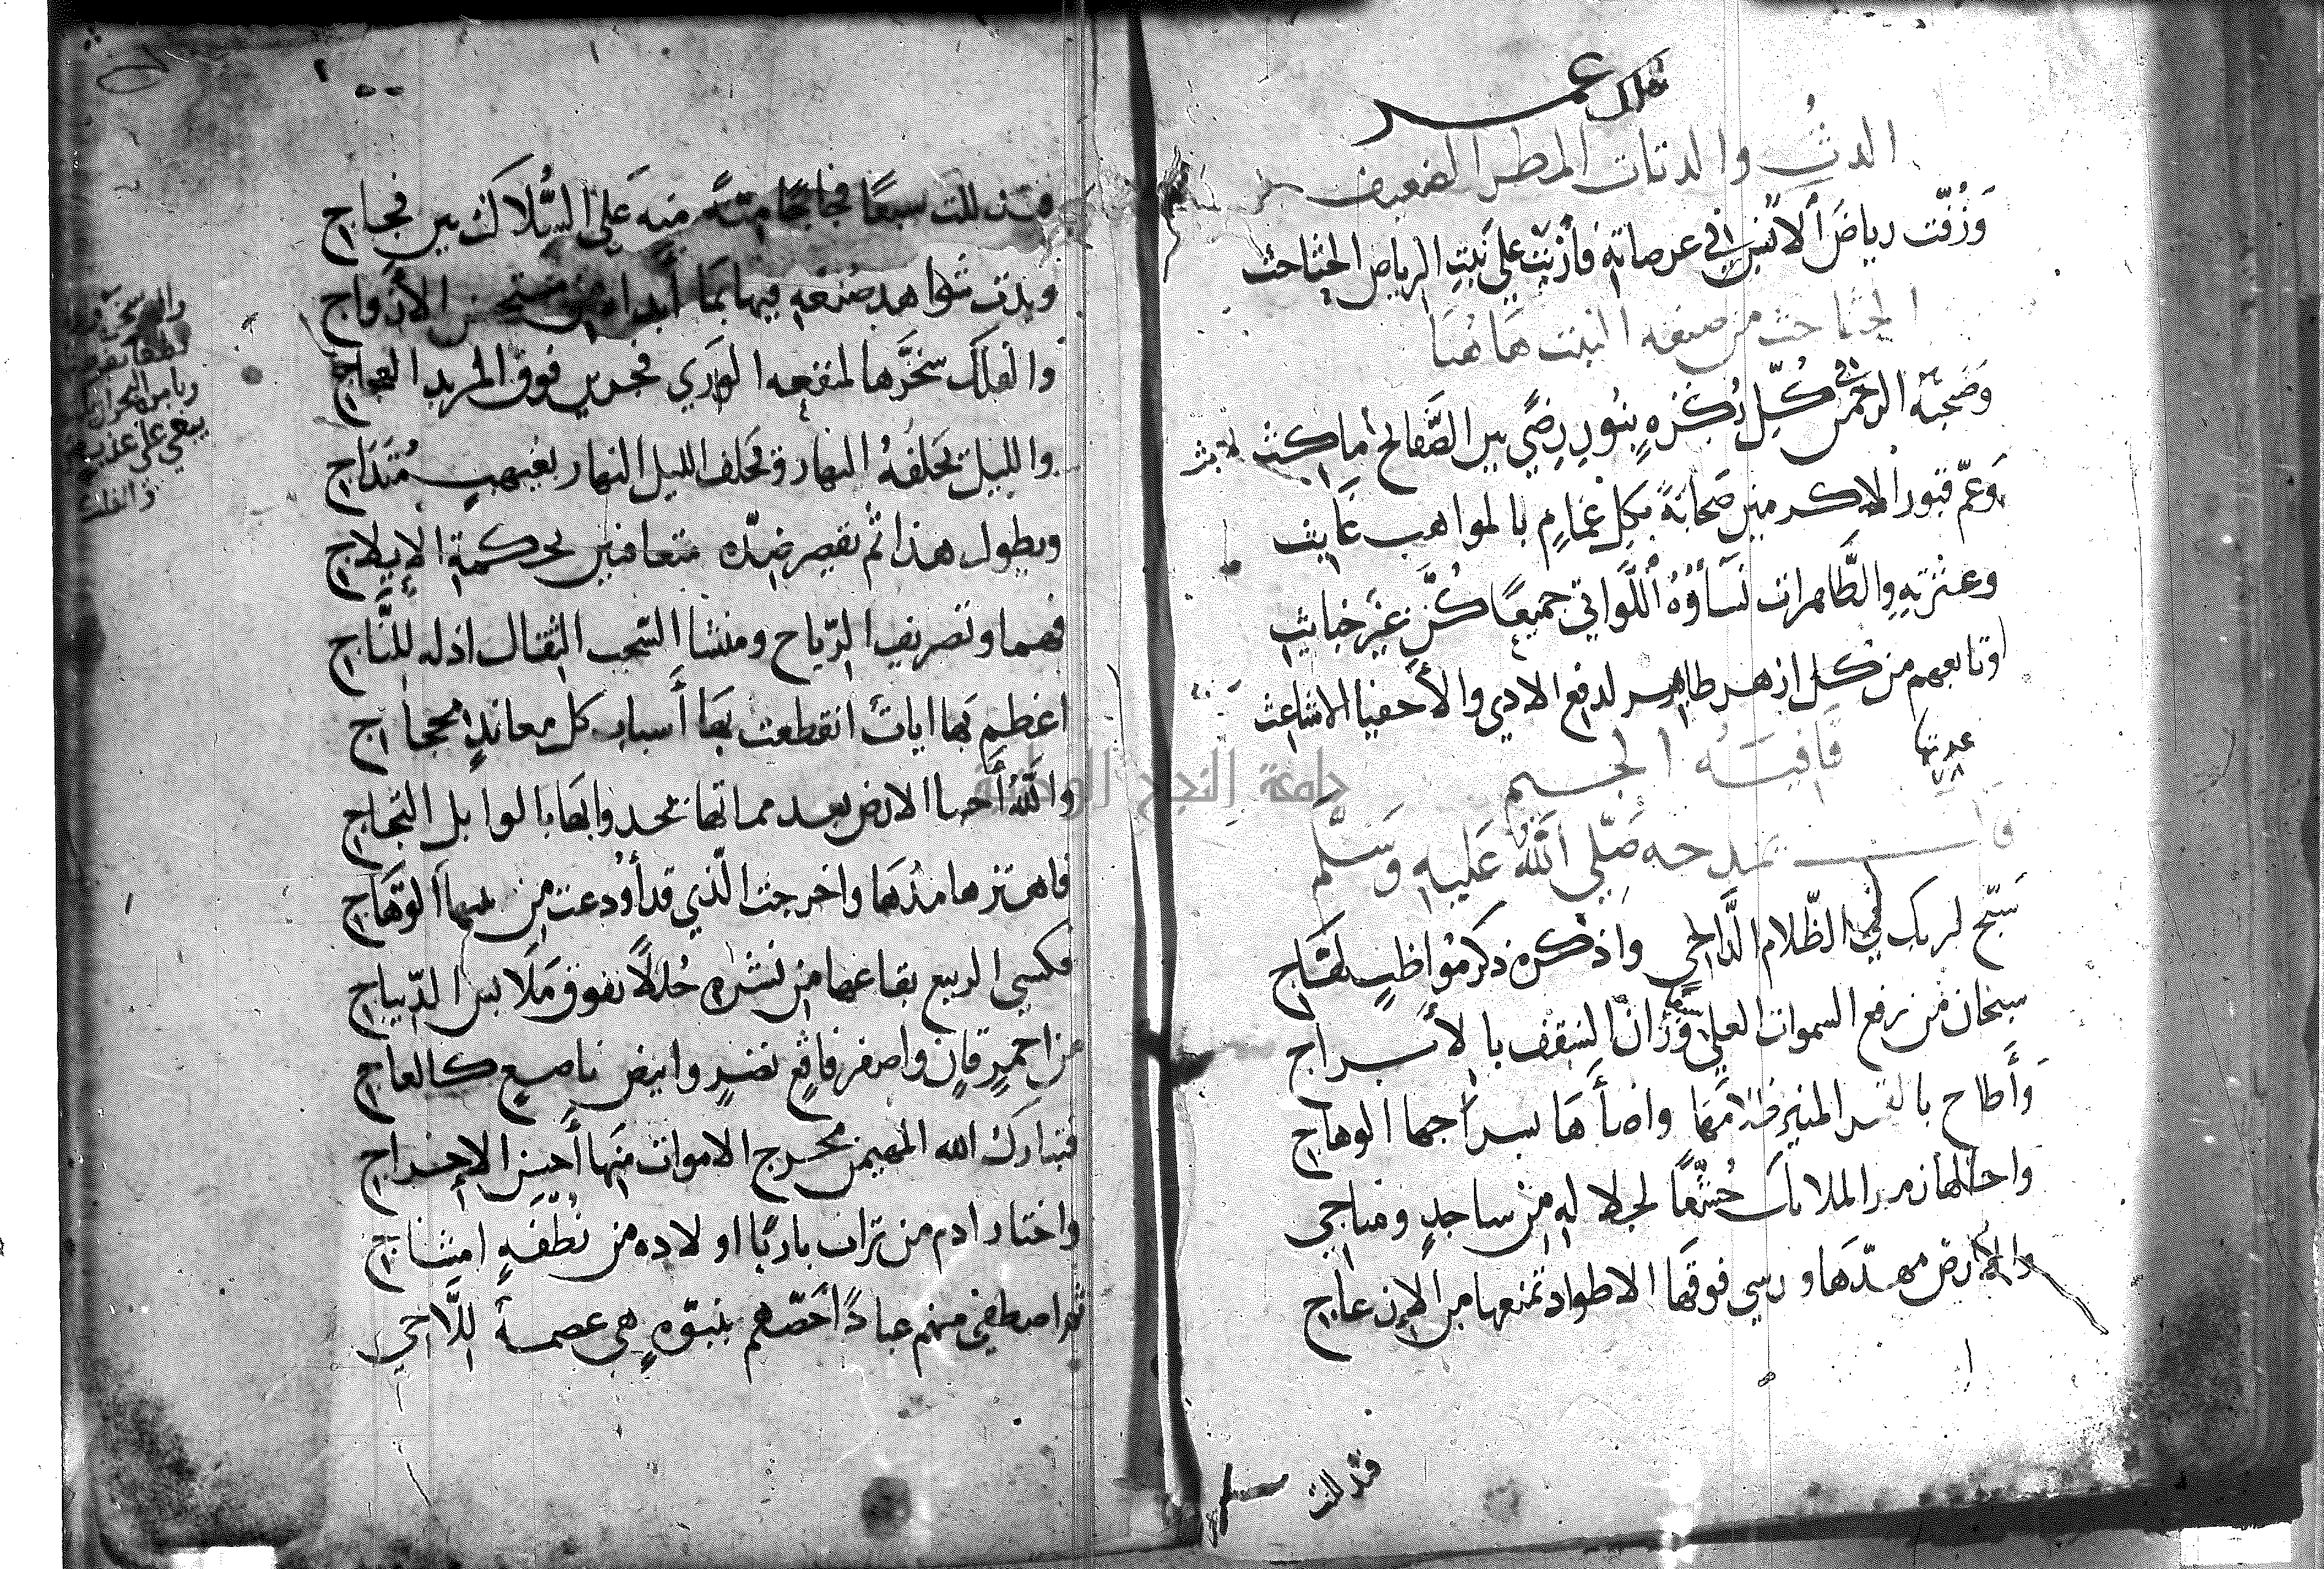 ملك عمر
الدث والدثاث المطر الضعيف
وَزُفّت رياضَ الأنس في عرصاته فأزْبَتْ على نبت الرياض الجثاجث
الجثاجث من صفة النبت هَاهُنَا
وَصَحبَه الرحمن في كُلّ بُكْرَةٍ بنُور رضًى بين الصَّفائح ماكث
وَعمّ قبور الاكرمين صَحابَةً بكل غمام بالمواهب غايث
وعترته والطَّاهرات نسَاؤُهُ اللَّواتي جميعًا كُنَّ غير خبايث
وتابعهم من كل ازهر طاهر لدفع الاذي والأحفيا الاشاعث
قَافيَــةُ الجــيم
عدتها ٧٨
وقال يمدحه صَلّي اللّٰهُ عَليهِ وَسَلَّم
سَبّح لربك في الظّلام الدَّاجي واذكره ذكر مُواظبٍ لهَّاج
سبحان من رفع السموات العلي وَزَان السَّقف بالأبراج
وَأَطاح بالقمر المنير ظلامَهَا واضأَهَا بسراجها الوهاج
واحتلها زمر الملائك خُشّعًا لجلاله من ساجدٍ ومناجي
والأرض مهّدَهَا ورسي فوقهَا الاطواد تمنعها من الإزعاج
فتذللت
فتذللت سبعًا فجاجًا متنه منه عَلى السُّلاك بين فجاج
وبدت شواهد صُنعه فيها بمَا أبداه من مستحسن الأزواج
والفلك سخَّرها لمنفعه الوري فجرين فوق المزبد العجاج
والليل يَخلفهُ النهار وتخلف الليل النهار بغيهبٍ مُتَدَاج
ويطول هذا ثم يقصر ضدّه متعاقبين بحكمة الإيلاج
فهما وتصريف الرّياح ومنشا السّحب الثقال ادله للنَّاج
اعظم بهَا اياتٌ انقطعت بهَا أسباب كل معاندٍ محجاج
واللّٰهُ أحيا الارض بعد مماتها يحدوا بهَا بالوابل الثجاج
فاهتز هامدُهَا واخرجت الّذي قد أُودعت من الوَهّاج
فكسي الربيع بقاعها من نشره حُلَلاً تفوق مَلابس الدّيباج
من احمرٍ قانٍ واصفر فاقعٍ نضرٍ وابيض ناصعٍ كالعاج
فتبارك الله المهيمن مخرج الاموات منها أحسن الإخراج
واختار ادم من تراب باريًا اولاده من نُطْفَهٍ امشاج
ثم اصطفي منهم عبادًا خصّهم بنبوّه هي عصمــة للّاجي
جامعة النجاح الوطنية